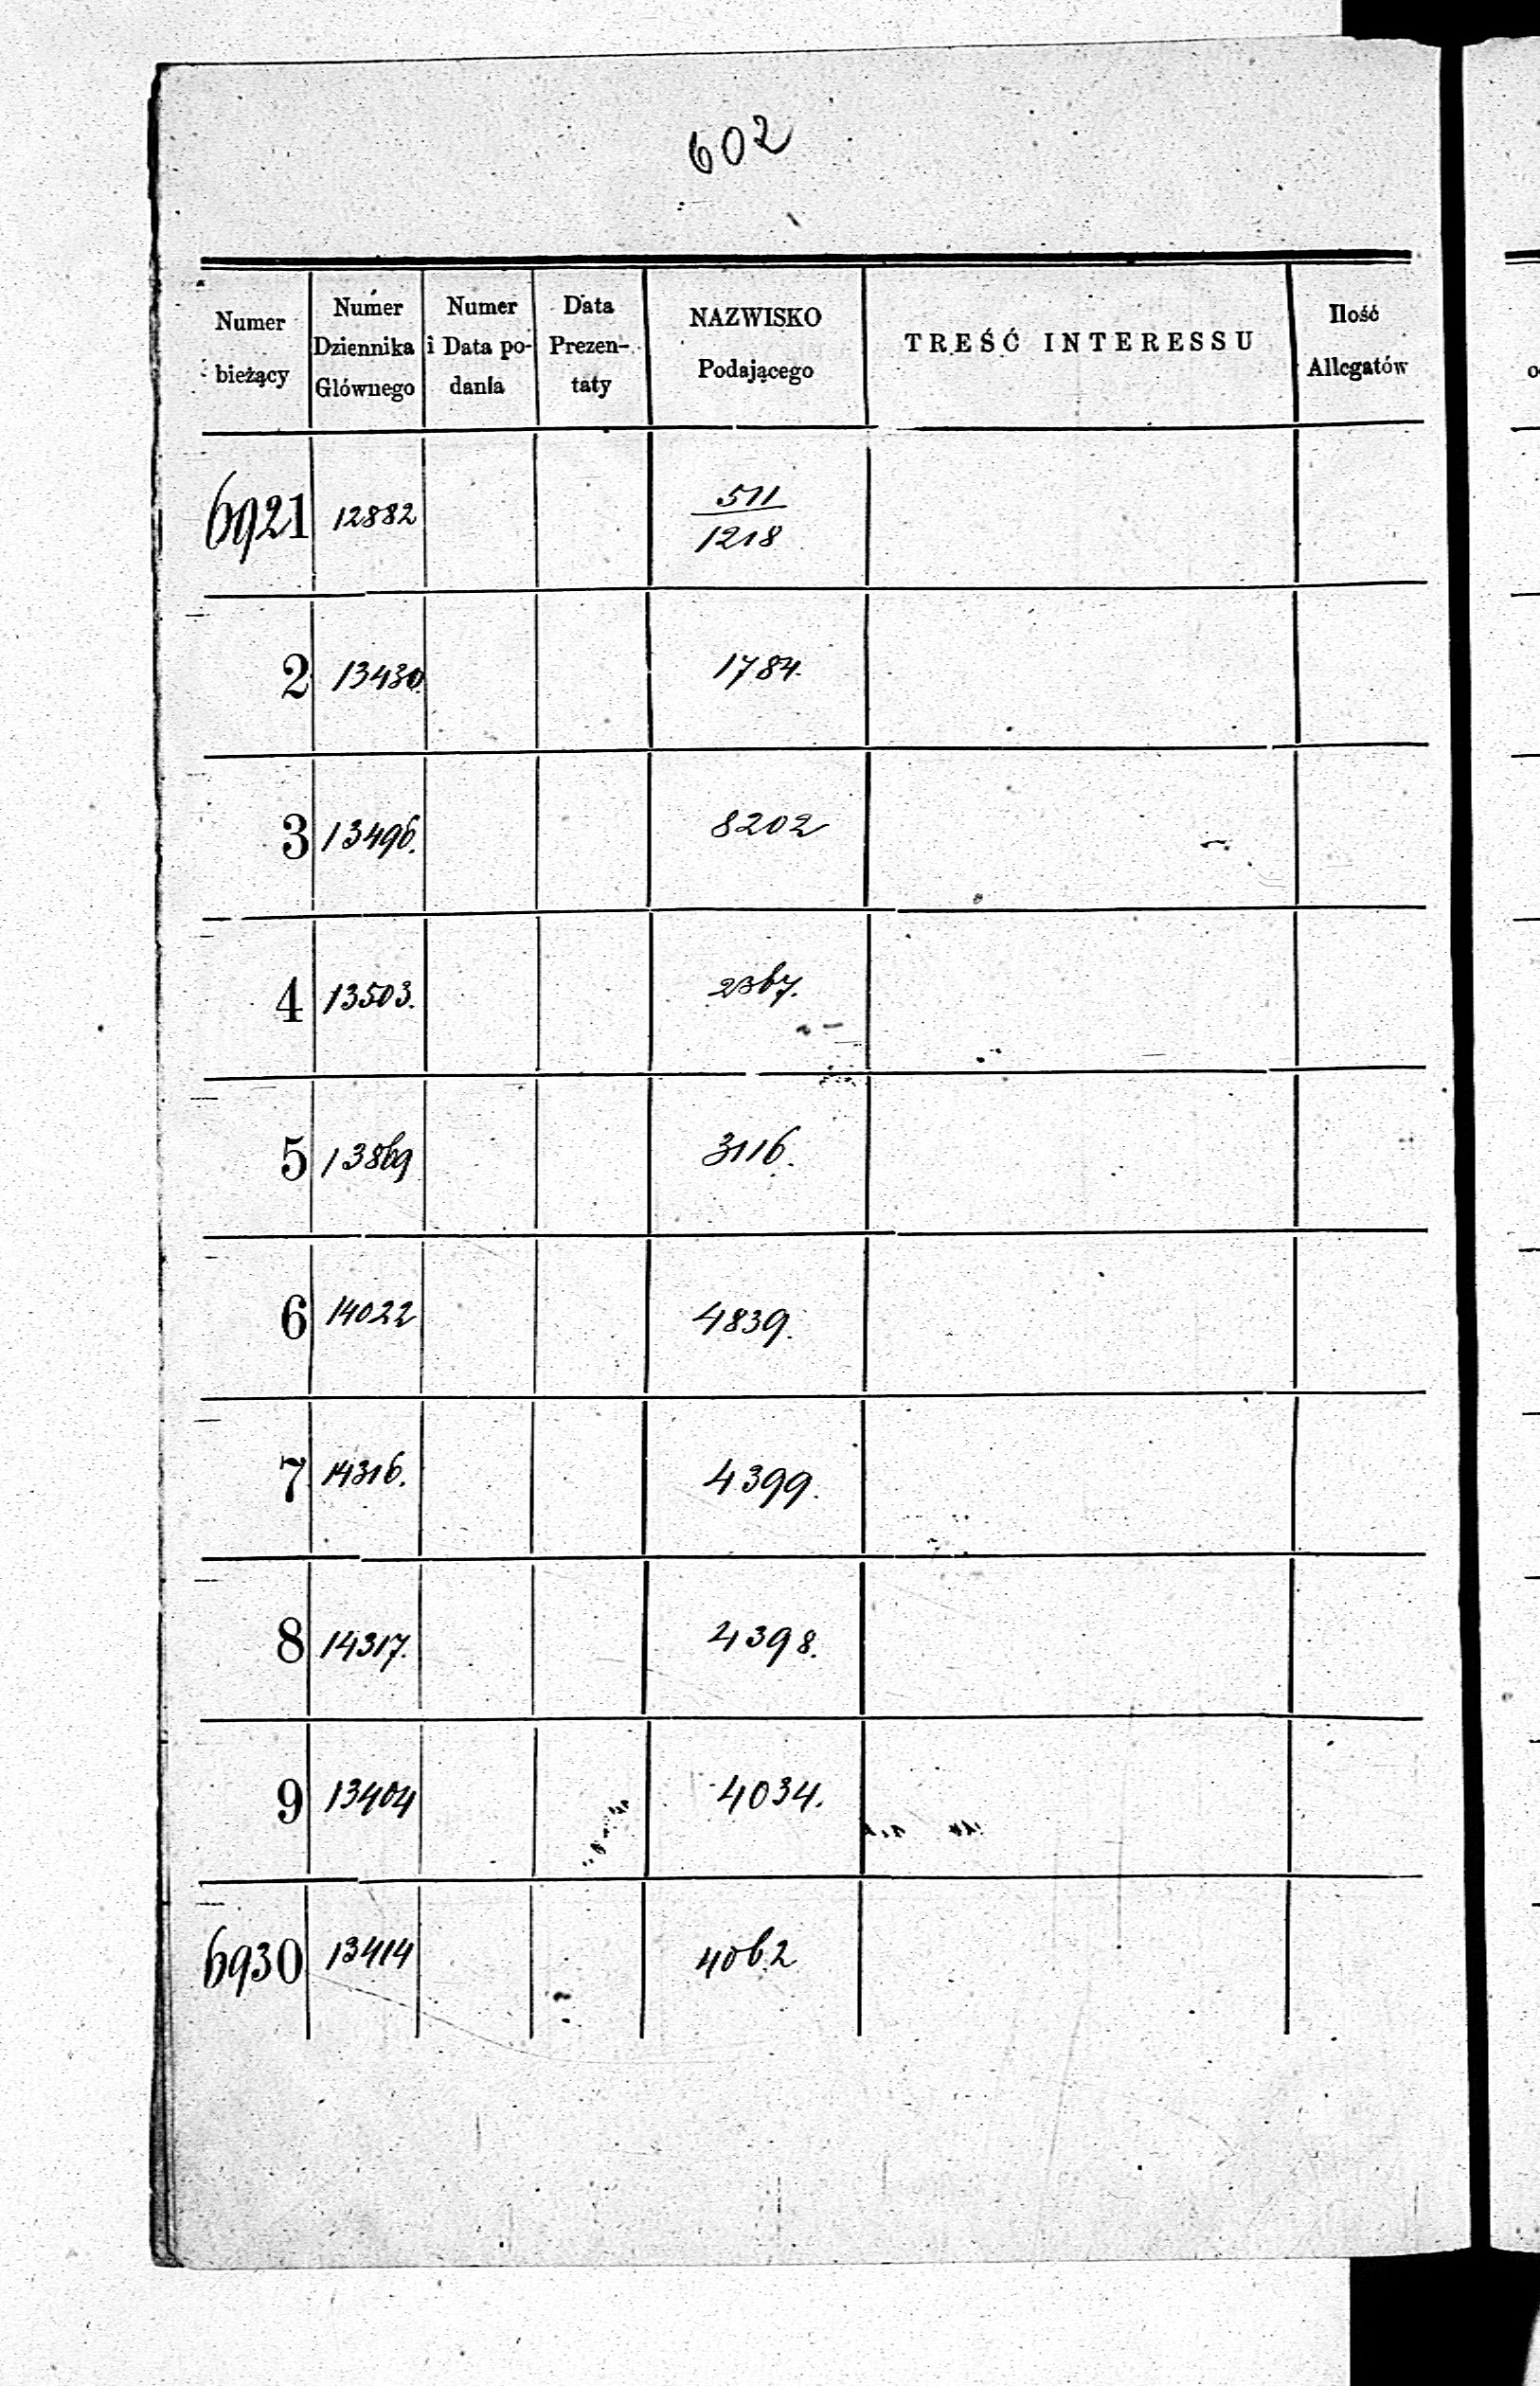 602
Numer bieżący | Numer Dziennika Głównego | Numer i Data podania | Data Prezentaty | NAZWISKO Podającego | TREŚĆ INTERESSU | Ilość Allegatów
6921 | 12882 | 511/1218
2 | 13430. | 1784.
3 | 13496. | 8202
4 | 13503. | 2367.
5 | 13869 | 3116.
6 | 14022 | 4839.
7 | 14316. | 4399.
8 | 14317. | 4398.
9 | 13404 | 4034.
6930 | 13414 | 4062